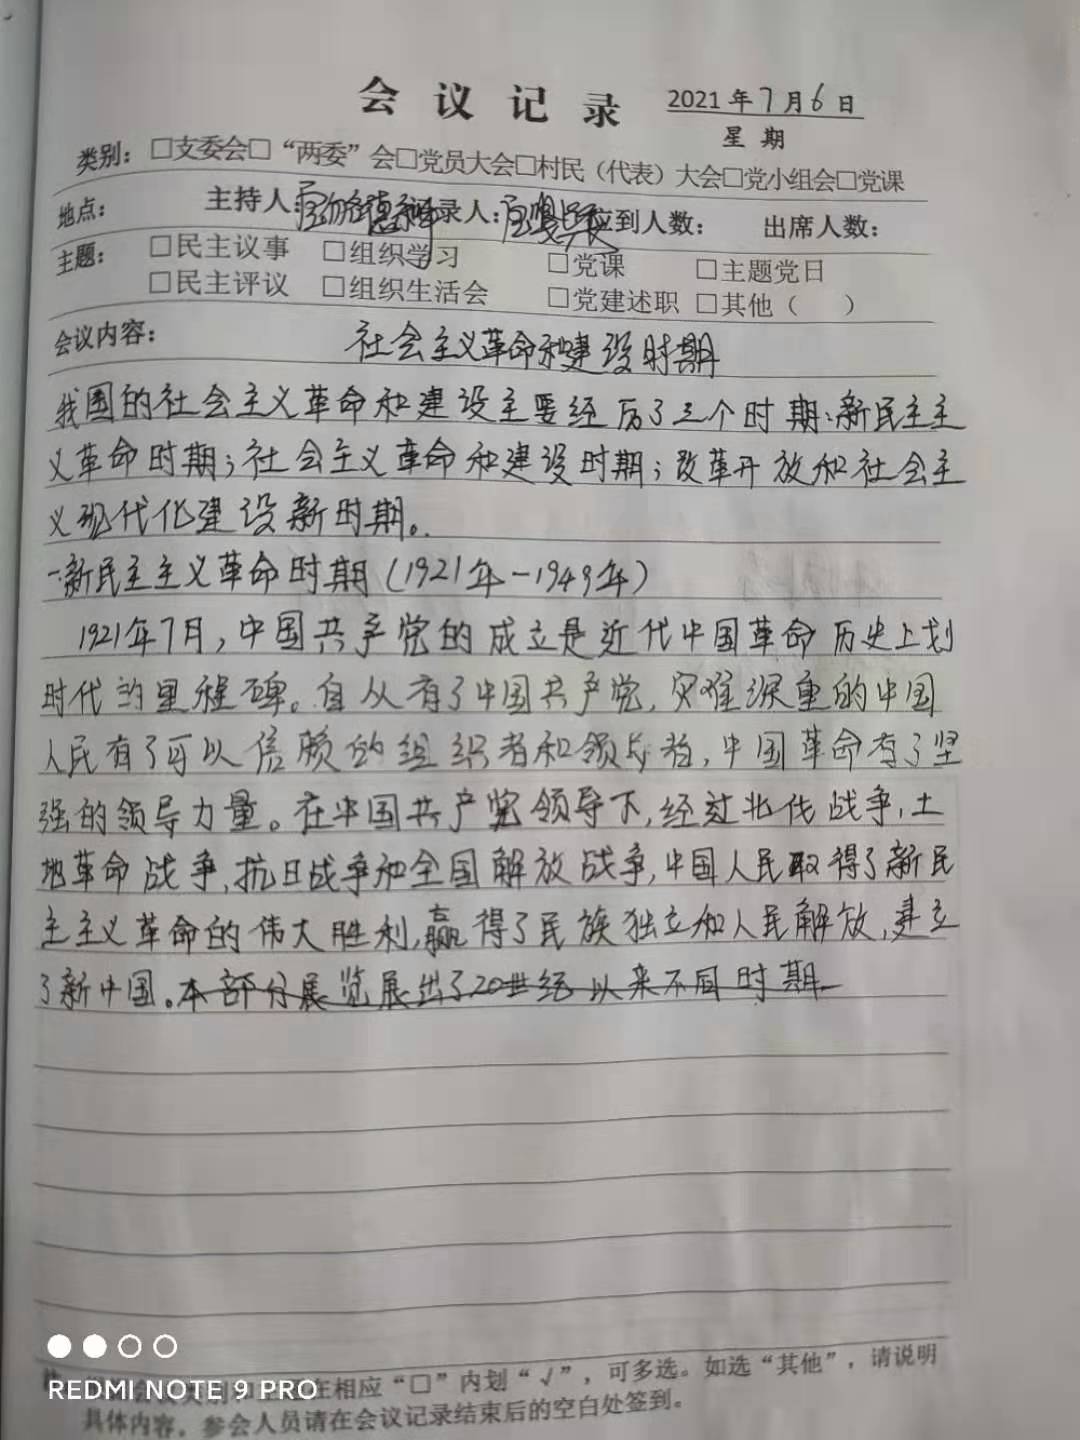 会议记录 2021年7月6日
星期
类别：□支委会□“两委”会□党员大会□村民（代表）大会□党小组会□党课
地点： 主持人： 录人： 应到人数： 出席人数：
主题： □民主议事 □组织学习 □党课 □主题党日
□民主评议 □组织生活会 □党建述职 □其他（ ）
会议内容： 社会主义革命和建设时期
我国的社会主义革命和建设主要经历了三个时期：新民主主
义革命时期；社会主义革命和建设时期；改革开放和社会主
义现代化建设新时期。
一.新民主主义革命时期（1921年-1949年）
1921年7月，中国共产党的成立是近代中国革命历史上划
时代的里程碑。自从有了中国共产党，灾难深重的中国
人民有了可以信赖的组织者和领导者，中国革命有了坚
强的领导力量。在中国共产党领导下，经过北伐战争，土
地革命战争，抗日战争和全国解放战争，中国人民取得了新民
主主义革命的伟大胜利，赢得了民族独立和人民解放，建立
了新中国。本部分展览展出了20世纪以来不同时期
在相应“□”内划“√”，可多选。如选“其他”，请说明
具体内容。参会人员请在会议记录结束后的空白处签到。
REDMI NOTE 9 PRO